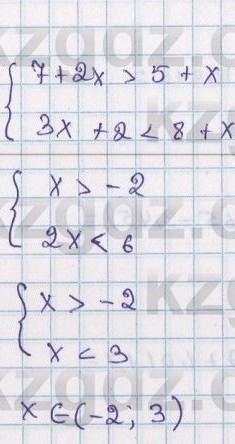 7 + 2x > 5 + x
3x + 2 < 8 + x
x > -2
2x < 6
x > -2
x < 3
x ∈ (-2; 3)